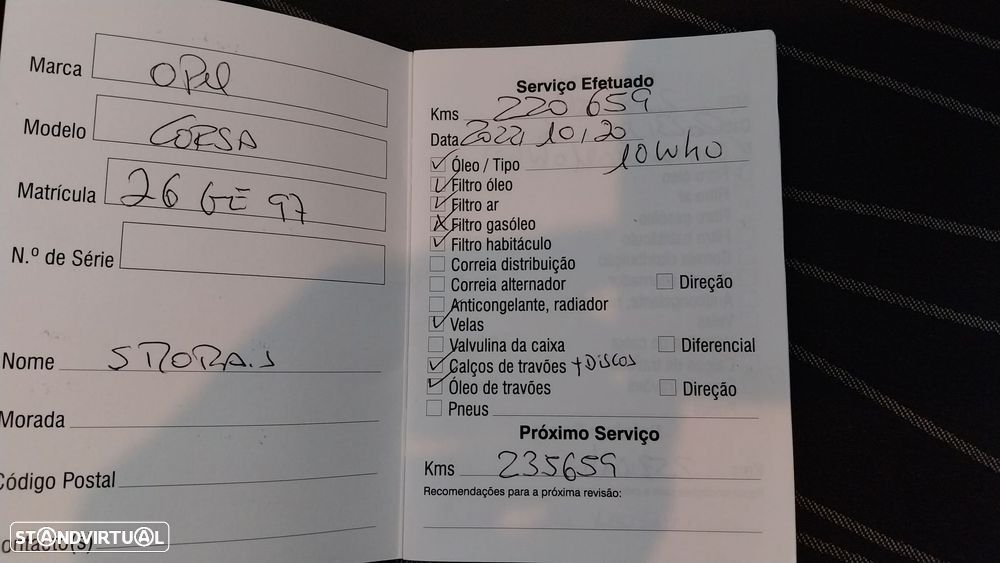 Marca OPEL
Modelo CORSA
Matrícula 26 GE 97
N.º de Série
Nome
Morada
Código Postal
Contacto(s)
STANDVIRTUAL
Serviço Efetuado
Kms 220 659
Data 2022/10/20
Óleo / Tipo 10W40
Filtro óleo
Filtro ar
Filtro gasóleo
Filtro habitáculo
Correia distribuição
Correia alternador Direção
Anticongelante, radiador
Velas
Valvulina da caixa Diferencial
Calços de travões + DISCOS
Óleo de travões Direção
Pneus
Próximo Serviço
Kms 235659
Recomendações para a próxima revisão: